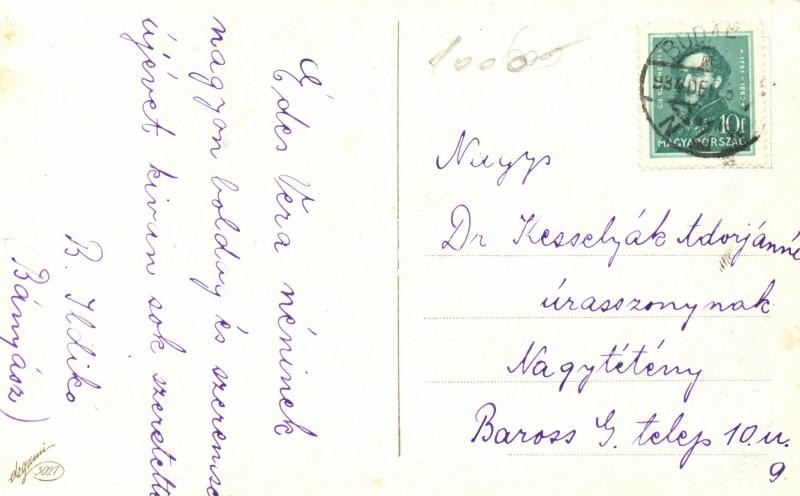 Édes Vera néninek
nagyon boldog és szerencsé
újévet kiván sok szeretette
B. Ildikó
(Bányász)
1000
BUDAP
934 DEC
10f
MAGYARORSZÁG
Nagys
Dr Kesselyák Adorjánné
úrasszonynak
Nagytétény
Baross G. telep 10.u.
9.
3027